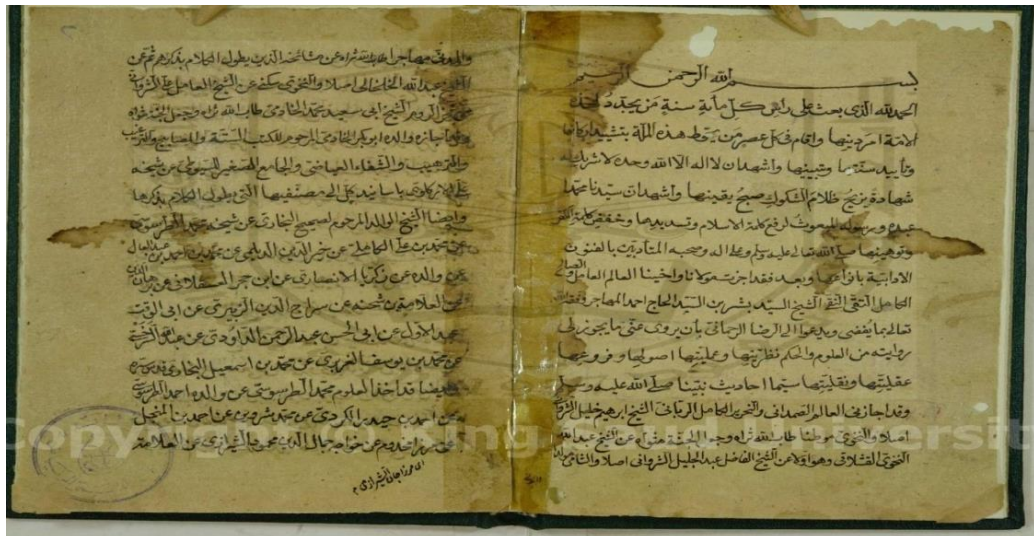 بسم الله الرحمن الرحيم
الحمد لله الذي بعث على راس كل ماية سنة من يجدد لهذه
الامة امر دينها واقام في كل عصر من يحوط هذه الملة بتشييد اركانها
وتأييد سنتها وتبيينها واشهد ان لا اله الا الله وحده لا شريك له
شهادة يزيح ظلام الشكوك صبح يقينها واشهد ان سيدنا محمدا
عبده ورسوله المبعوث لرفع كلمة الاسلام وتشديدها وخفض كلمة الكفر
وتوهينها صلى الله تعالى عليه وسلم وعلى اله وصحبه المتأدبين بالفنون
الادابية بانواعها وبعد فقد اجزت مولانا واخينا العالم العامل والصالح
الكامل التقي النقي الشيخ السيد بشر بن السيد الحاج احمد المهاجر
تعالى ما يفضى ويدعوا الى الرضا الرحماني بان يروى عني ما يجوز لي
روايته من العلوم والحكم نظريتها وعمليتها اصولها وفروعها
عقليتها ونقليتها سيما احاديث نبينا صلى الله عليه وسلم
وقد اجازني العالم الصمداني والنحرير الكامل الرباني الشيخ ابرهيم خليل
اصلا والنخوى موطنا طاب الله ثراه وجعل الجنة مثواه عن الشيخ عبد الله
النخوى القشلاقى وهو اولا عن الشيخ الفاضل عبد الجليل الشرواني اصلا
والمدني مهاجرا طاب الله ثراه عن مشائخه الذين يطول الكلام بذكرهم ثم عن
عبد الله اصلا والنخوى سكنى عن الشيخ العامل
الشيخ ابى سعيد محمد الخادمى طاب الله ثراه وجعل الجنة مثواه
والده المرحوم للكتب الستة والمصابيح
والترهيب والشفاء العياضى والجامع الصغير للسيوطى عن شيخه
باسانيد كل الى مصنفيها التي يطول الكلام بذكرها
وايضا الشيخ الوالد المرحوم لصحيح البخارى عن شيخه محمد الطرسوسى
عن محمد بن على الكاملى عن خير الدين عن محمد بن احمد بن عبد العال
عن والده عن زكريا الانصارى عن ابن حجر العسقلانى عن
عن سراج الدين الزبيدى عن ابى الوقت
عبد الاول عن ابى الحسن عبد الرحمن الداودى عن عبد الله السرخسى
عن محمد بن يوسف الفربرى عن محمد بن اسمعيل البخارى
وايضا قد اخذ العلوم محمد الطرسوسى عن والده احمد الطرسوسى
عن احمد بن حيدر الكردى عن محمد شروين عن احمد بن المنجل
عن مرزا مخدوم عن خواجه جمال الدين محمود الشيرازى عن العلامة
اى مرزا جان الشيرازى م
Copyright © King Saud University